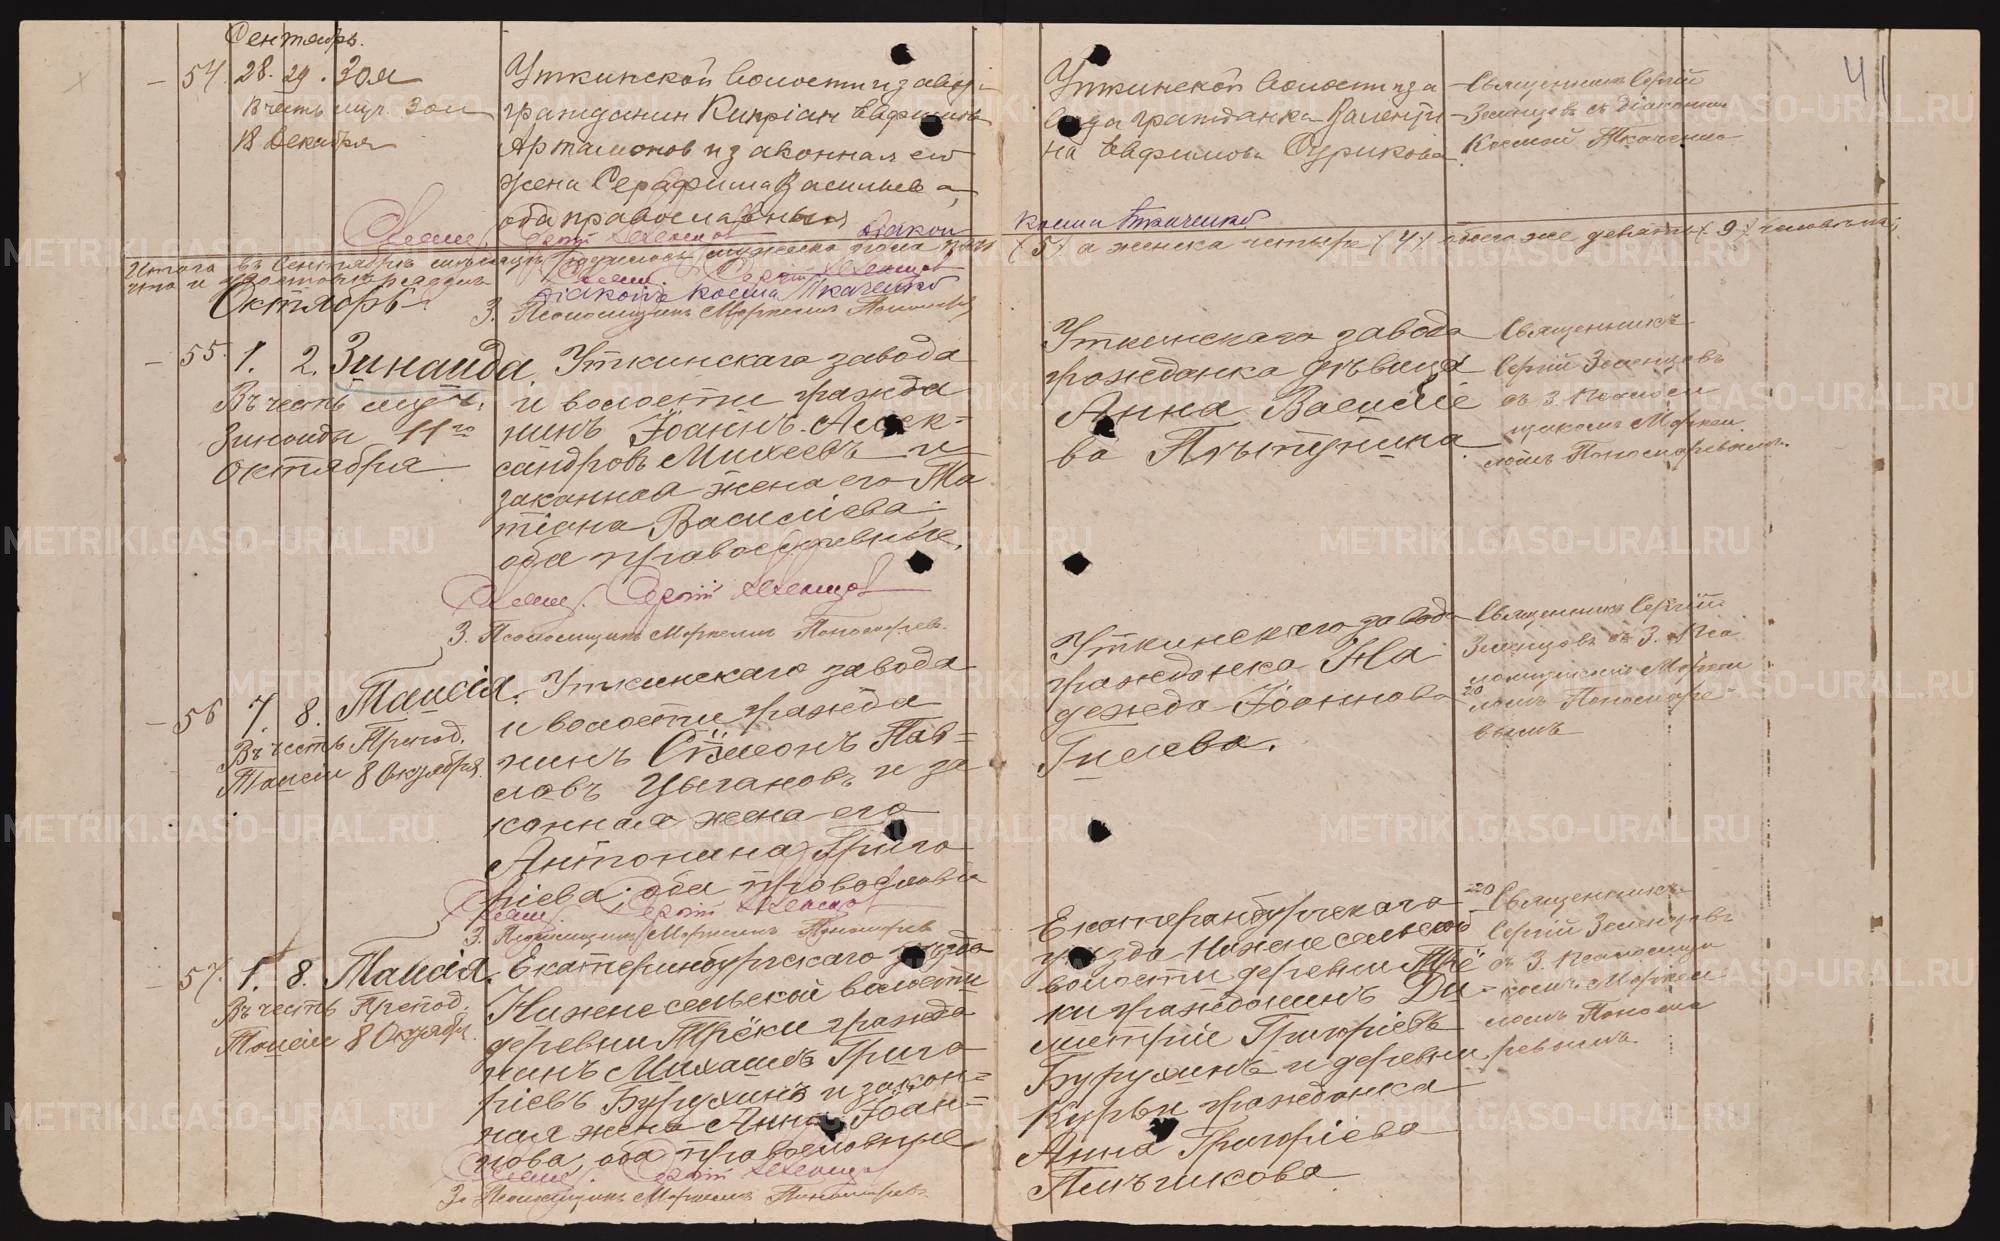 Сентябрь.
41
54. 28. 29. Зоя
Въ честь муч. Зои
18 Декабря
Уткинской волости и завод
гражданин Киприан Евфимов
Артамонов и законная его
жена Серафима Васильева,
оба православныя
Уткинской волости и за
вода гражданка Валенти
на Евфимова
Священник Сергий
Земнцов с диаконом
Космой Ткаченко
Свящ. Сергий
диакон Косма Ткаченко
Итого въ Сентябрѣ месяцѣ родилось мужеска пола пять (5) а женска четыре (4) обоего же девять (9) человѣкъ
Свящ. Сергий
Діаконъ Косма Ткаченко
З. Псаломщикъ Маркеллъ Пономарев
Октябрь.
55. 1. 2. Зинаида.
Въ честь муч.
Зинаиды 11го
октября
Уткинскаго завода
и волости гражда
нинъ Іоаннъ Алек=
сандровъ Михеевъ и
законная жена его Та
тіана Васильева;
оба православные.
Уткинскаго завода
гражданка дѣвица
Анна Василье
ва
Священникъ
Сергій Земнцовъ
съ З. Псалом
щикомъ Маркел
ломъ Пономаревымъ.
Свящ. Сергій
З. Псаломщикъ Маркеллъ Пономарев.
56 7. 8. Таисія.
Въ честь Препод.
Таисіи 8 Октября.
Уткинскаго завода
и волости гражда
нинъ Сѵмеонъ Пав=
ловъ Цыгановъ и за
конная жена его
Антонина Григо
ріева; оба православн
Уткинскаго завода
гражданка На
дежда Іоаннова
Гилева.
Священникъ Сергій
Земнцовъ съ З. Пса
ломщикомъ Маркел
ломъ Пономаре
вымъ
Свящ. Сергій
З. Псаломщикъ Маркеллъ Пономарев
57. 1. 8. Таисія.
Въ честь Препод.
Таисіи 8 Октября.
Екатеринбургскаго уѣзда
Нижнесельской волости
деревни Трёки гражда
нинъ Михаилъ Григо
ріевъ Бурухинъ и закон=
ная жена Анна Іоан=
нова, оба православные
Екатеринбургскаго
уѣзда Нижнесельской
волости деревни Трё
ки гражданинъ Ди=
митрій Григоріевъ
Бурухинъ и деревни
Курьи гражданка
Анна Григоріева
Пльчикова
Священникъ
Сергій Земнцовъ
съ З. Псаломщи
комъ Маркел
ломъ Понома
ревымъ.
Свящ. Сергій
З. Псаломщикъ Маркеллъ Пономарев.
METRIKI.GASO-URAL.RU